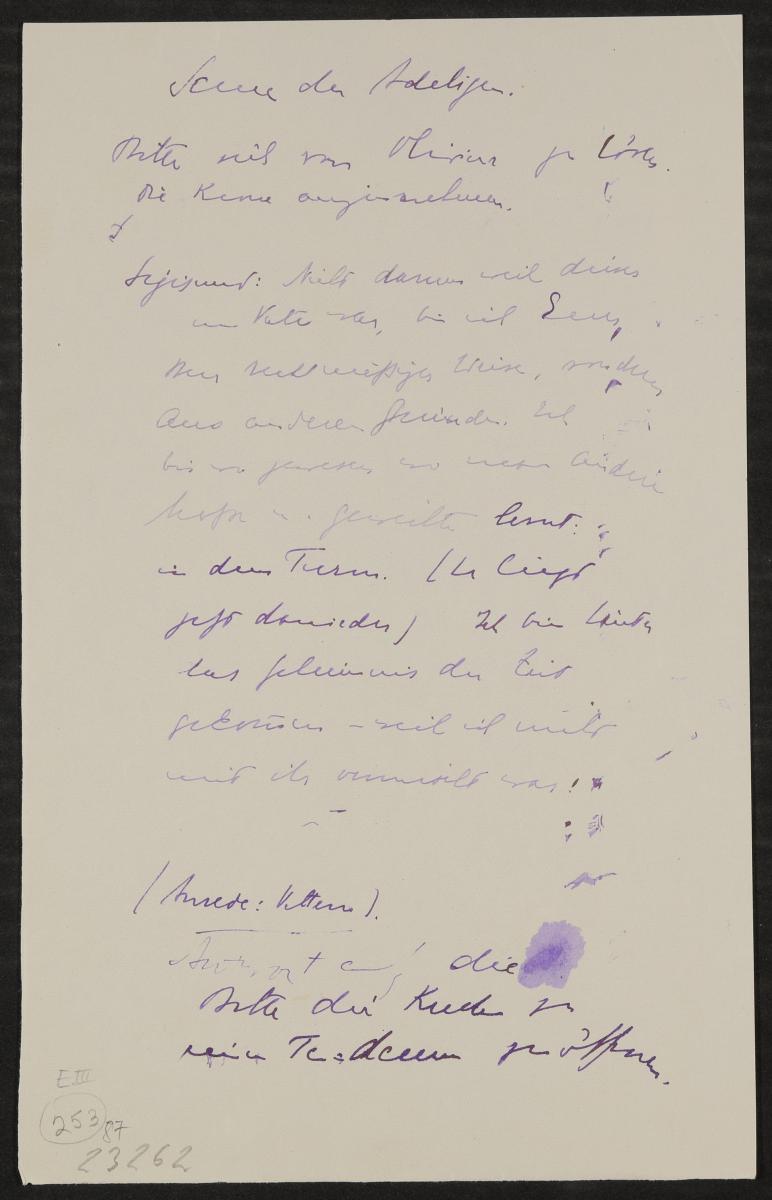 Scene der Adeligen.
Bitte sich von Olivier zu lösen.
die Krone anzunehmen.
Sigismund: Nicht darum weil dieses
mein Vater war, bin ich Euer,
rechtmäßiger Weise, sondern
aus anderen Gründen. Ich
bin wo gewesen wo man andere
lernt:
in dem Turm. (Er liegt
jetzt danieder) Ich bin hinter
das Geheimnis der Zeit
gekommen – weil ich nicht
mit ihr vermischt war!
(Anrede: Vettern).
Antwort auf die
Bitte die Kirchen zu
einem Te-deum zu öffnen.
E III
253
87
23262